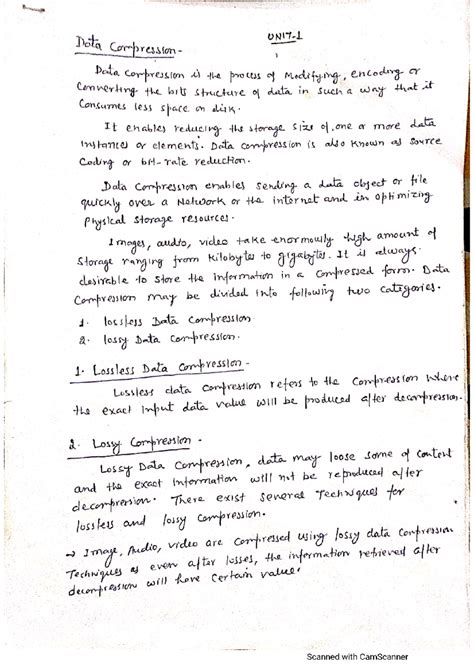 UNIT-1
Data Compression -
Data Compression is the process of Modifying, encoding or
Converting the bits structure of data in such a way that it
Consumes less space on disk.
It enables reducing the storage size of one or more data
instances or elements. Data compression is also known as Source
Coding or bit-rate reduction.
Data Compression enables sending a data object or file
quickly over a Network or the internet and in optimizing
physical storage resources.
Images, audio, video take enormously high amount of
Storage ranging from kilobytes to gigabytes. It is always
desirable to store the information in a compressed form. Data
Compression may be divided into following two categories.
1. lossless Data Compression
2. lossy Data Compression.
1. Lossless Data Compression -
Lossless data compression refers to the Compression where
the exact input data value will be produced after decompression.
2. Lossy Compression -
Lossy Data Compression, data may loose some of content
and the exact information will not be reproduced after
decompression. There exist several Techniques for
lossless and lossy Compression.
→ Image, Audio, video are compressed using lossy data Compression
Techniques as even after losses, the information retrieved after
decompression will have certain value.
Scanned with CamScanner